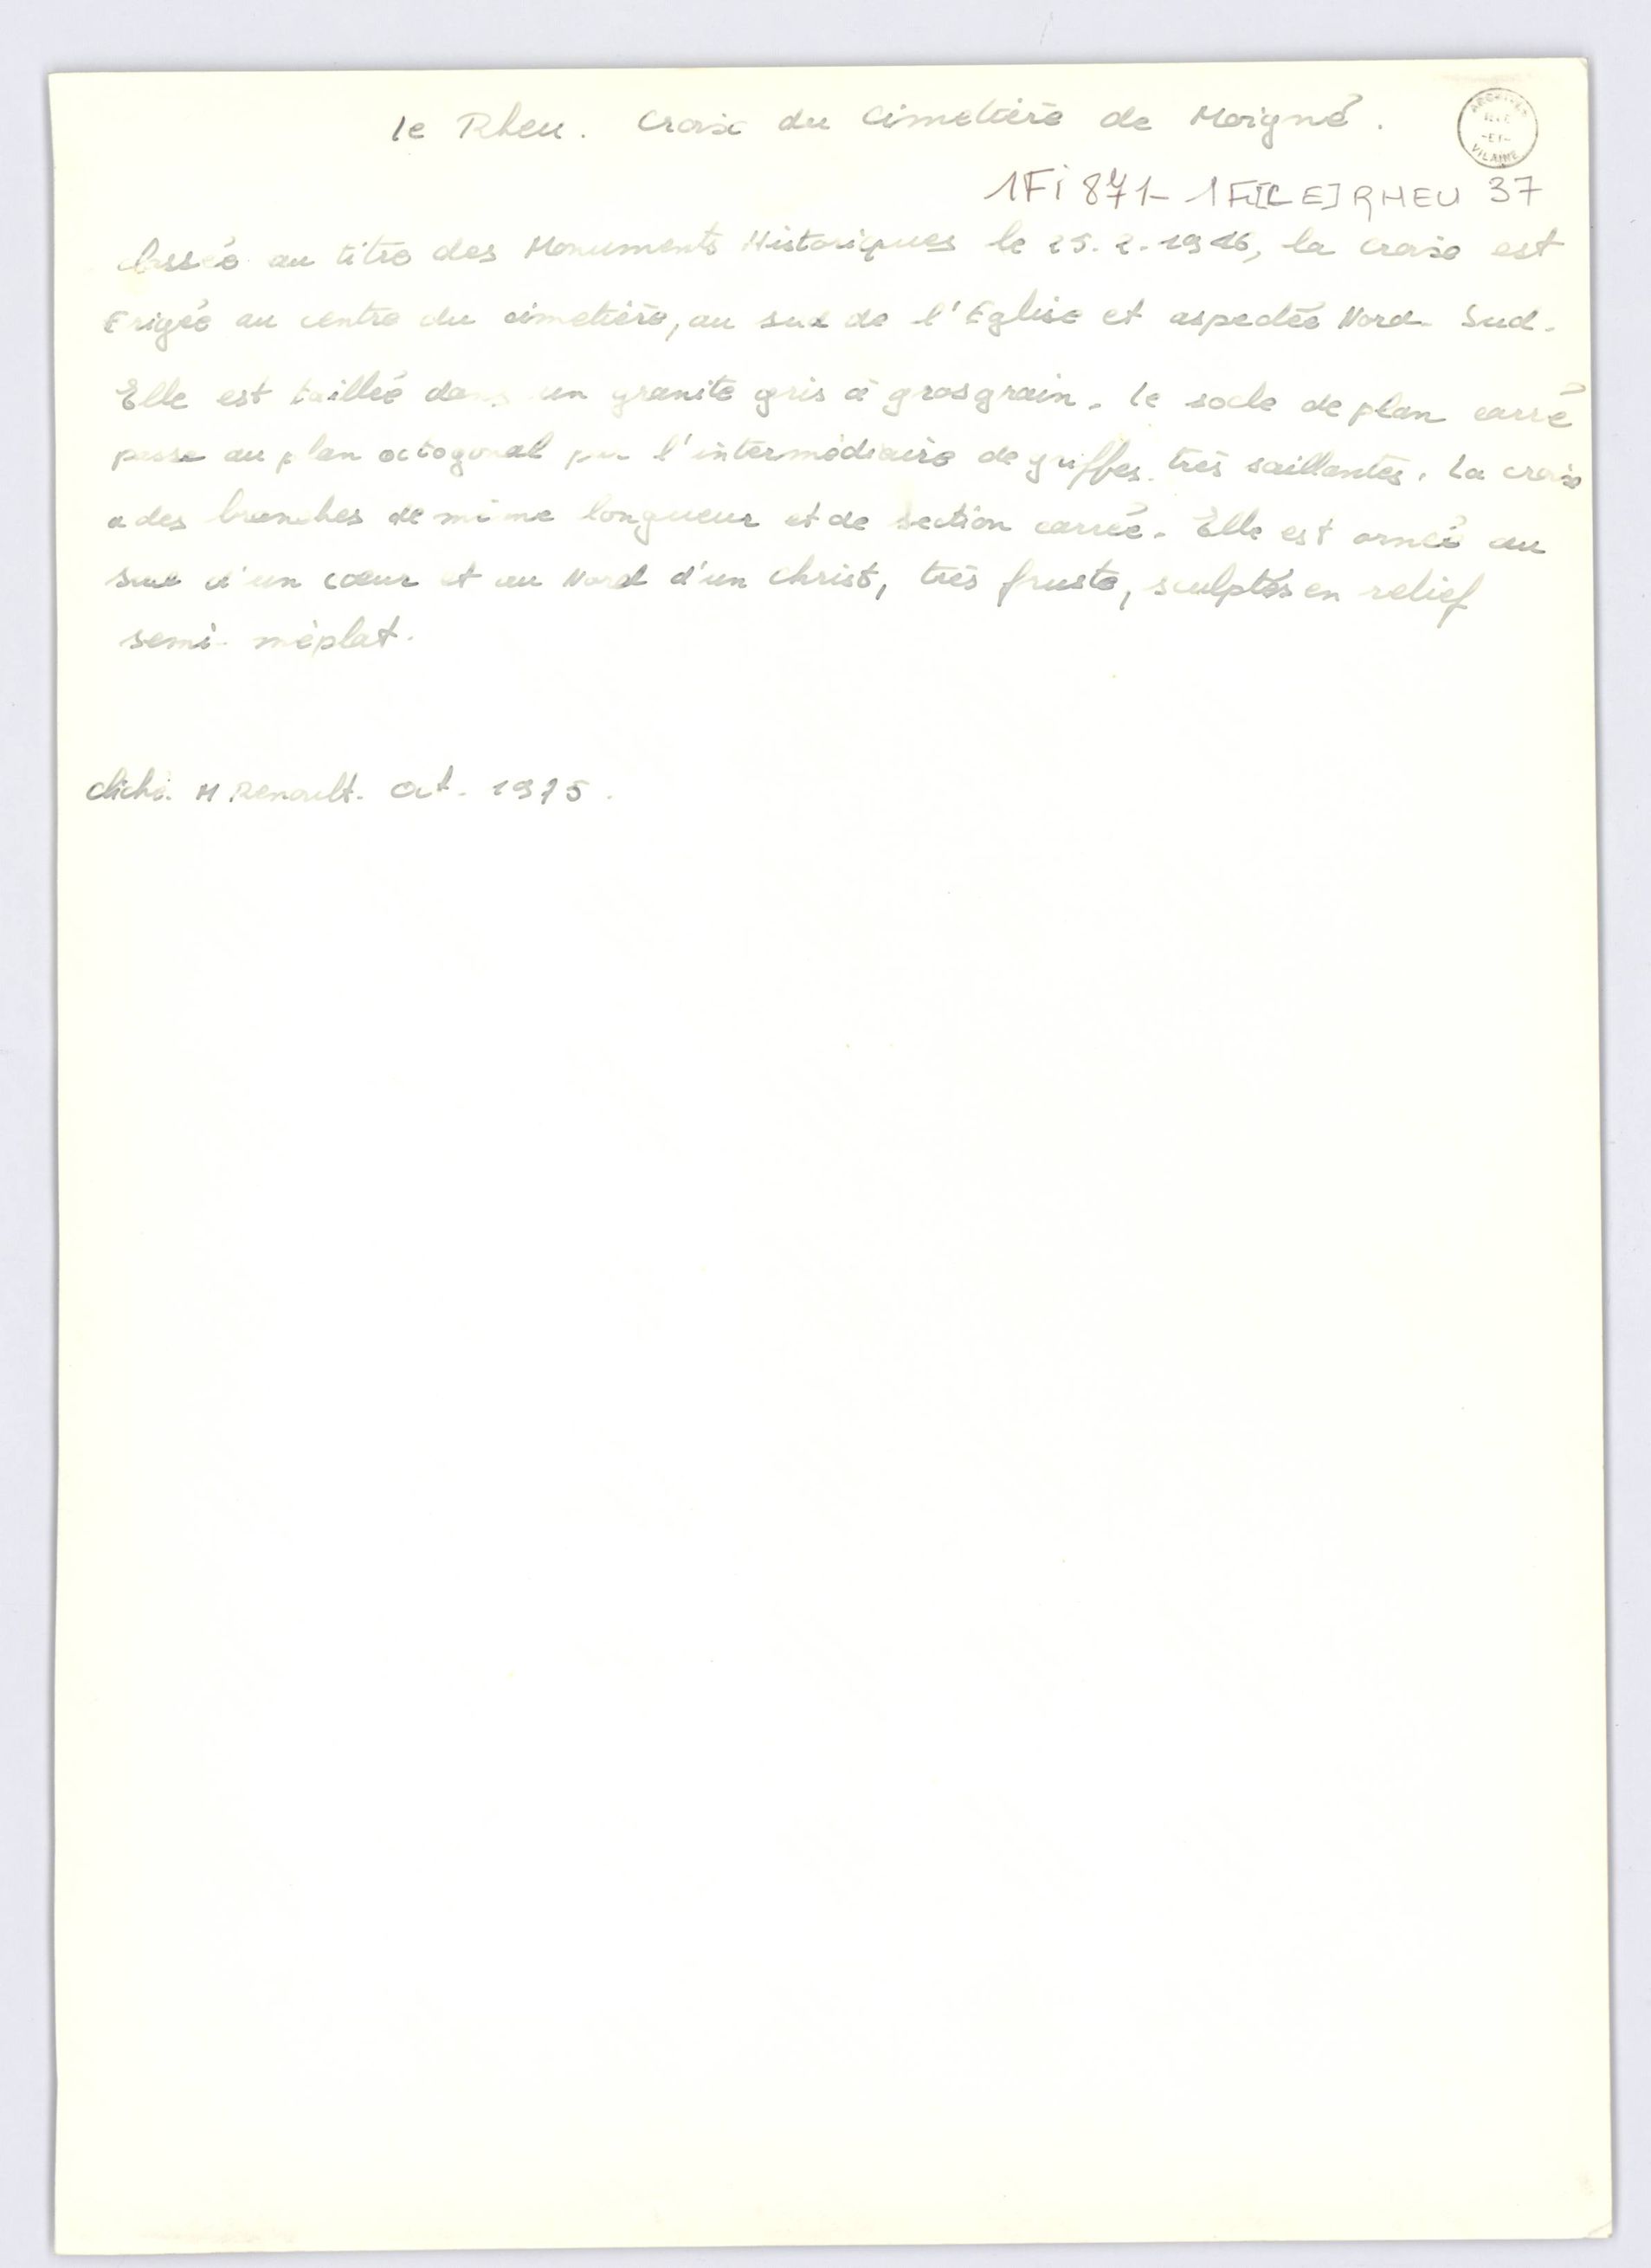 le Rheu. Croix du Cimetière de Moigné.
ARCHIVES
ILLE
-ET-
VILAINE
1Fi 871- 1F[LE] RHEU 37
classée au titre des Monuments Historiques le 25.2.1946, la croix est
Erigée au centre du cimetière, au sud de l'Eglise et aspectée Nord-Sud.
Elle est taillée dans un granite gris à gros grain. le socle de plan carré
passe au plan octogonal par l'intermédiaire de griffes très saillantes. La croix
a des branches de même longueur et de section carrée. Elle est ornée au
Sud d'un coeur et au Nord d'un Christ, très fruste, sculptés en relief
semi-méplat.
cliché. M. Renault. Oct. 1975.